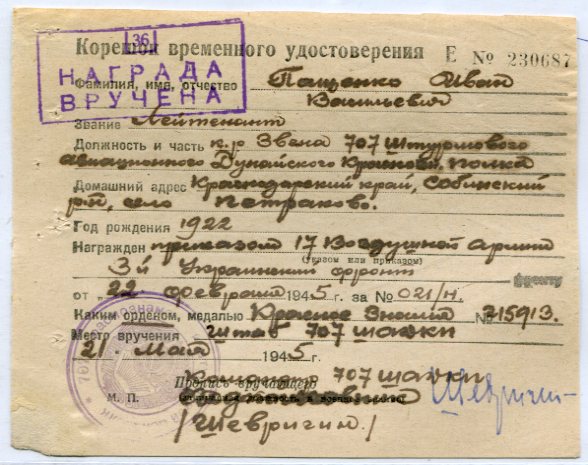 36
НАГРАДА
ВРУЧЕНА
Корешок временного удостоверения Е № 230687
Фамилия, имя, отчество Пащенко Иван
Васильевич
Звание Лейтенант
Должность и часть к-р Звена 707 Штурмового
авиационного Дунайского Краснозн. полка
Домашний адрес Краснодарский край,
р-н, село Петраково.
Год рождения 1922
Награжден приказом 17 Воздушной Армии
(указом или приказом)
3й Украинский фронт
от „22 февраля 1945 г. за № 021/н.
Каким орденом, медалью Красное Знамя № 215913.
Место вручения Штаб 707 шадкп
21. Май 1945 г.
Командир 707 шадкп
Подпись вручающего
М. П.
/Шевригин./
Шевригин